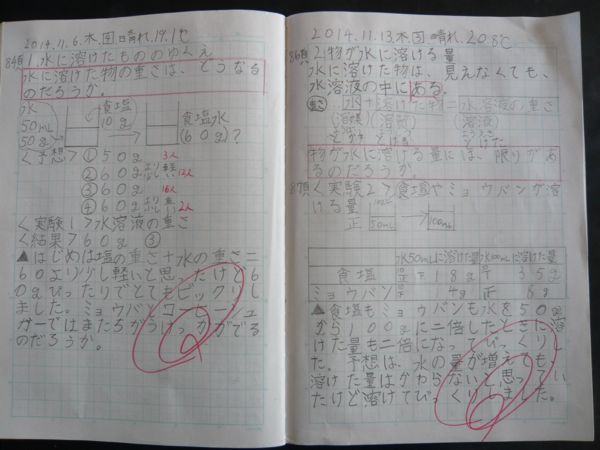 2014.11.6.木.晴れ.19.1℃
84頁 1.水に溶けたもののゆくえ
水に溶けた物の重さは、どうなる
のだろうか。
水
50mL
50g
食塩
10g
食塩水
(60g)?
<予想>①50g 3人
②60gより軽い 12人
③60g 16人
④60gより重い 2人
<実験1>水溶液の重さ
<結果>60g ③
▲はじめは塩の重さ+水の重さ=
60よりり軽いと思ったけど6
0gぴったりでとてもビックリし
ました。ミョウバン
ガーではまたちがうけっかがでる
のだろうか。
2014.11.13.木.晴れ.20.8℃
86頁 2.物が水に溶ける量
水に溶けた物は、見えなくても、
水溶液の中にある。
水+溶けた物=水溶液の重さ
(溶媒)(溶質) (溶液)
物が水に溶ける量には、限りがあ
るのだろうか。
87頁<実験2>食塩やミョウバンが溶
ける量
正
50mL
100mL
水50mLに溶けた量 水100mLに溶けた量
食塩 18g 35g
ミョウバン 4g 正 8g
▲食塩もミョウバンも水を50g
から100gに二倍したときに溶
けた量も二倍になってびっくりし
た。予想は、水の量が増えても、
溶けた量はかわらないと思ってい
たけど溶けてびっくりしました。